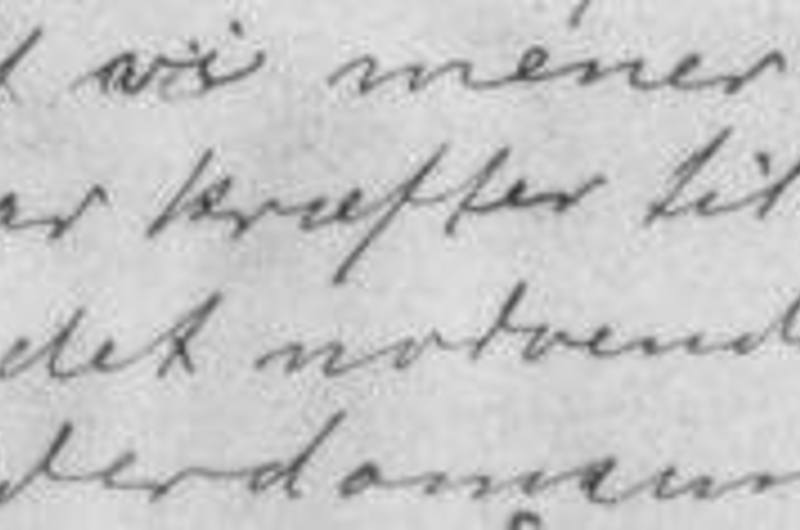 vi mener
kræfter til
det nodvend
derdomm